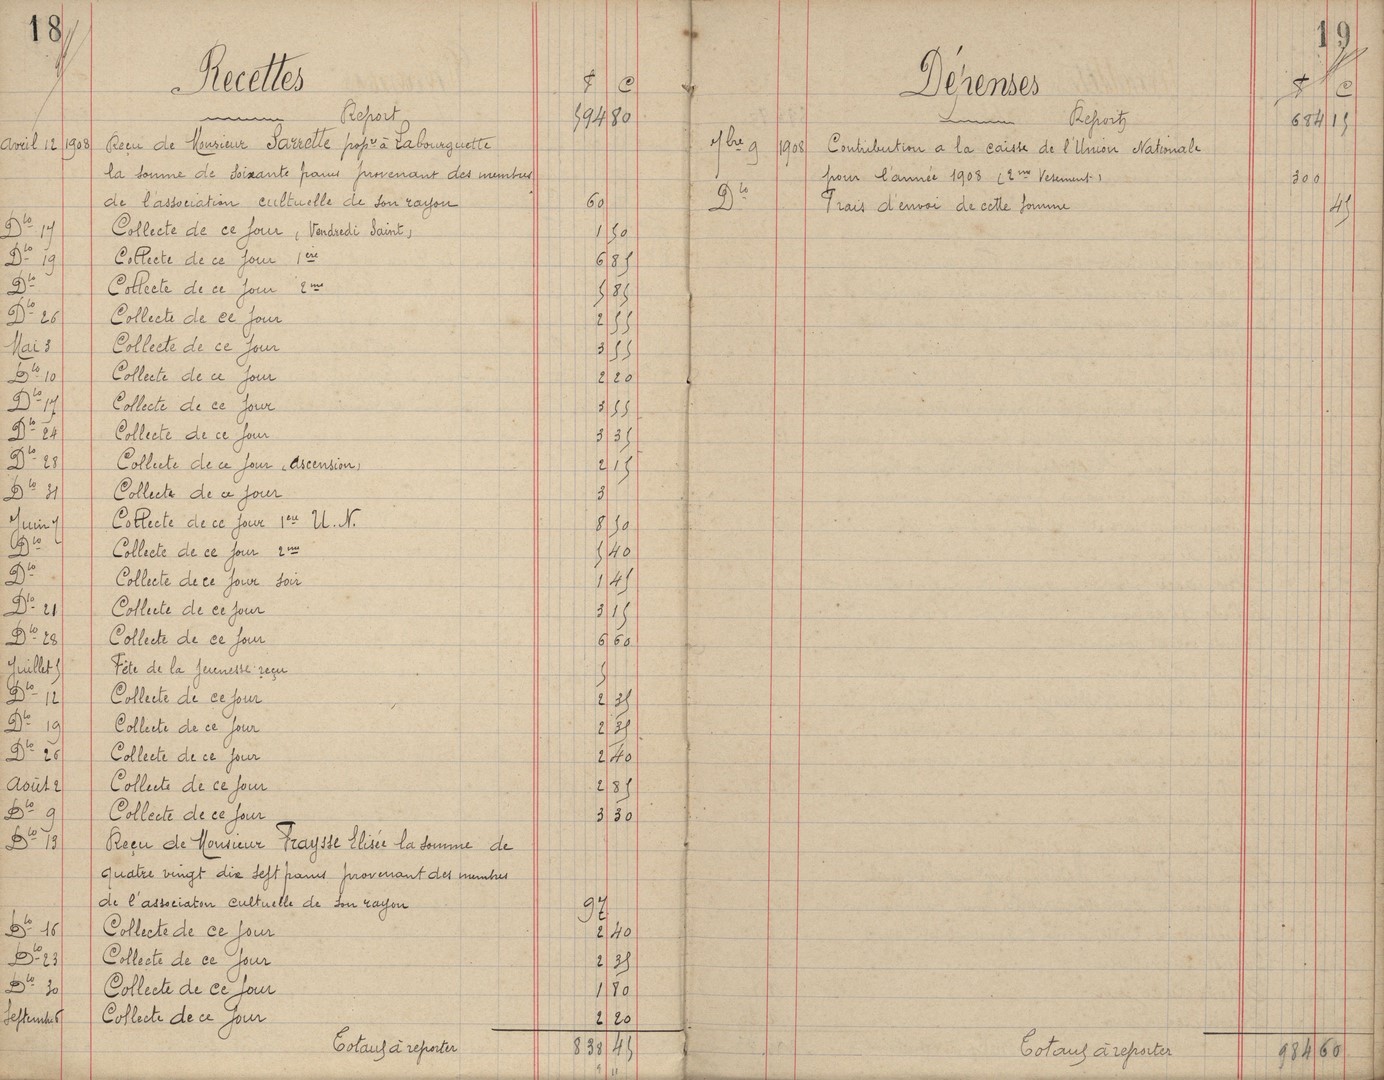 18
Recettes F C
Report 594 80
Avril 12 1908 Reçu de Monsieur Sarrette propre à Labourguette
la somme de soixante francs provenant des membres
de l'association cultuelle de son rayon 60
Dto 17 Collecte de ce Jour (Vendredi Saint) 1 50
Dto 19 Collecte de ce Jour 1ère 6 85
Dto Collecte de ce Jour 2me 5 85
Dto 26 Collecte de ce Jour 2 55
Mai 3 Collecte de ce Jour 3 55
Dto 10 Collecte de ce Jour 2 20
Dto 17 Collecte de ce Jour 3 55
Dto 24 Collecte de ce Jour 3 35
Dto 28 Collecte de ce Jour (Ascension) 2 15
Dto 31 Collecte de ce Jour 3
Juin 7 Collecte de ce Jour 1ere U.N. 8 50
Dto Collecte de ce Jour 2me 5 40
Dto Collecte de ce Jour soir 1 45
Dto 21 Collecte de ce Jour 3 15
Dto 28 Collecte de ce Jour 6 60
Juillet 5 Fête de la Jeunesse reçu 5
Dto 12 Collecte de ce Jour 2 35
Dto 19 Collecte de ce Jour 2 35
Dto 26 Collecte de ce Jour 2 40
Août 2 Collecte de ce Jour 2 85
Dto 9 Collecte de ce Jour 3 30
Dto 13 Reçu de Monsieur Fraysse Elisée la somme de
quatre vingt dix sept francs provenant des membres
de l'associaton cultuelle de son rayon 97
Dto 16 Collecte de ce Jour 2 40
Dto 23 Collecte de ce Jour 2 35
Dto 30 Collecte de ce Jour 1 80
Septembre 6 Collecte de ce Jour 2 20
Totaux à reporter 838 45
19
Dépenses F C
Report 684 15
7bre 9 1908 Contribution a la caisse de l'Union Nationale
pour l'année 1908 (2me Versement) 300
Dto Frais d'envoi de cette somme 45
Totaux à reporter 984 60